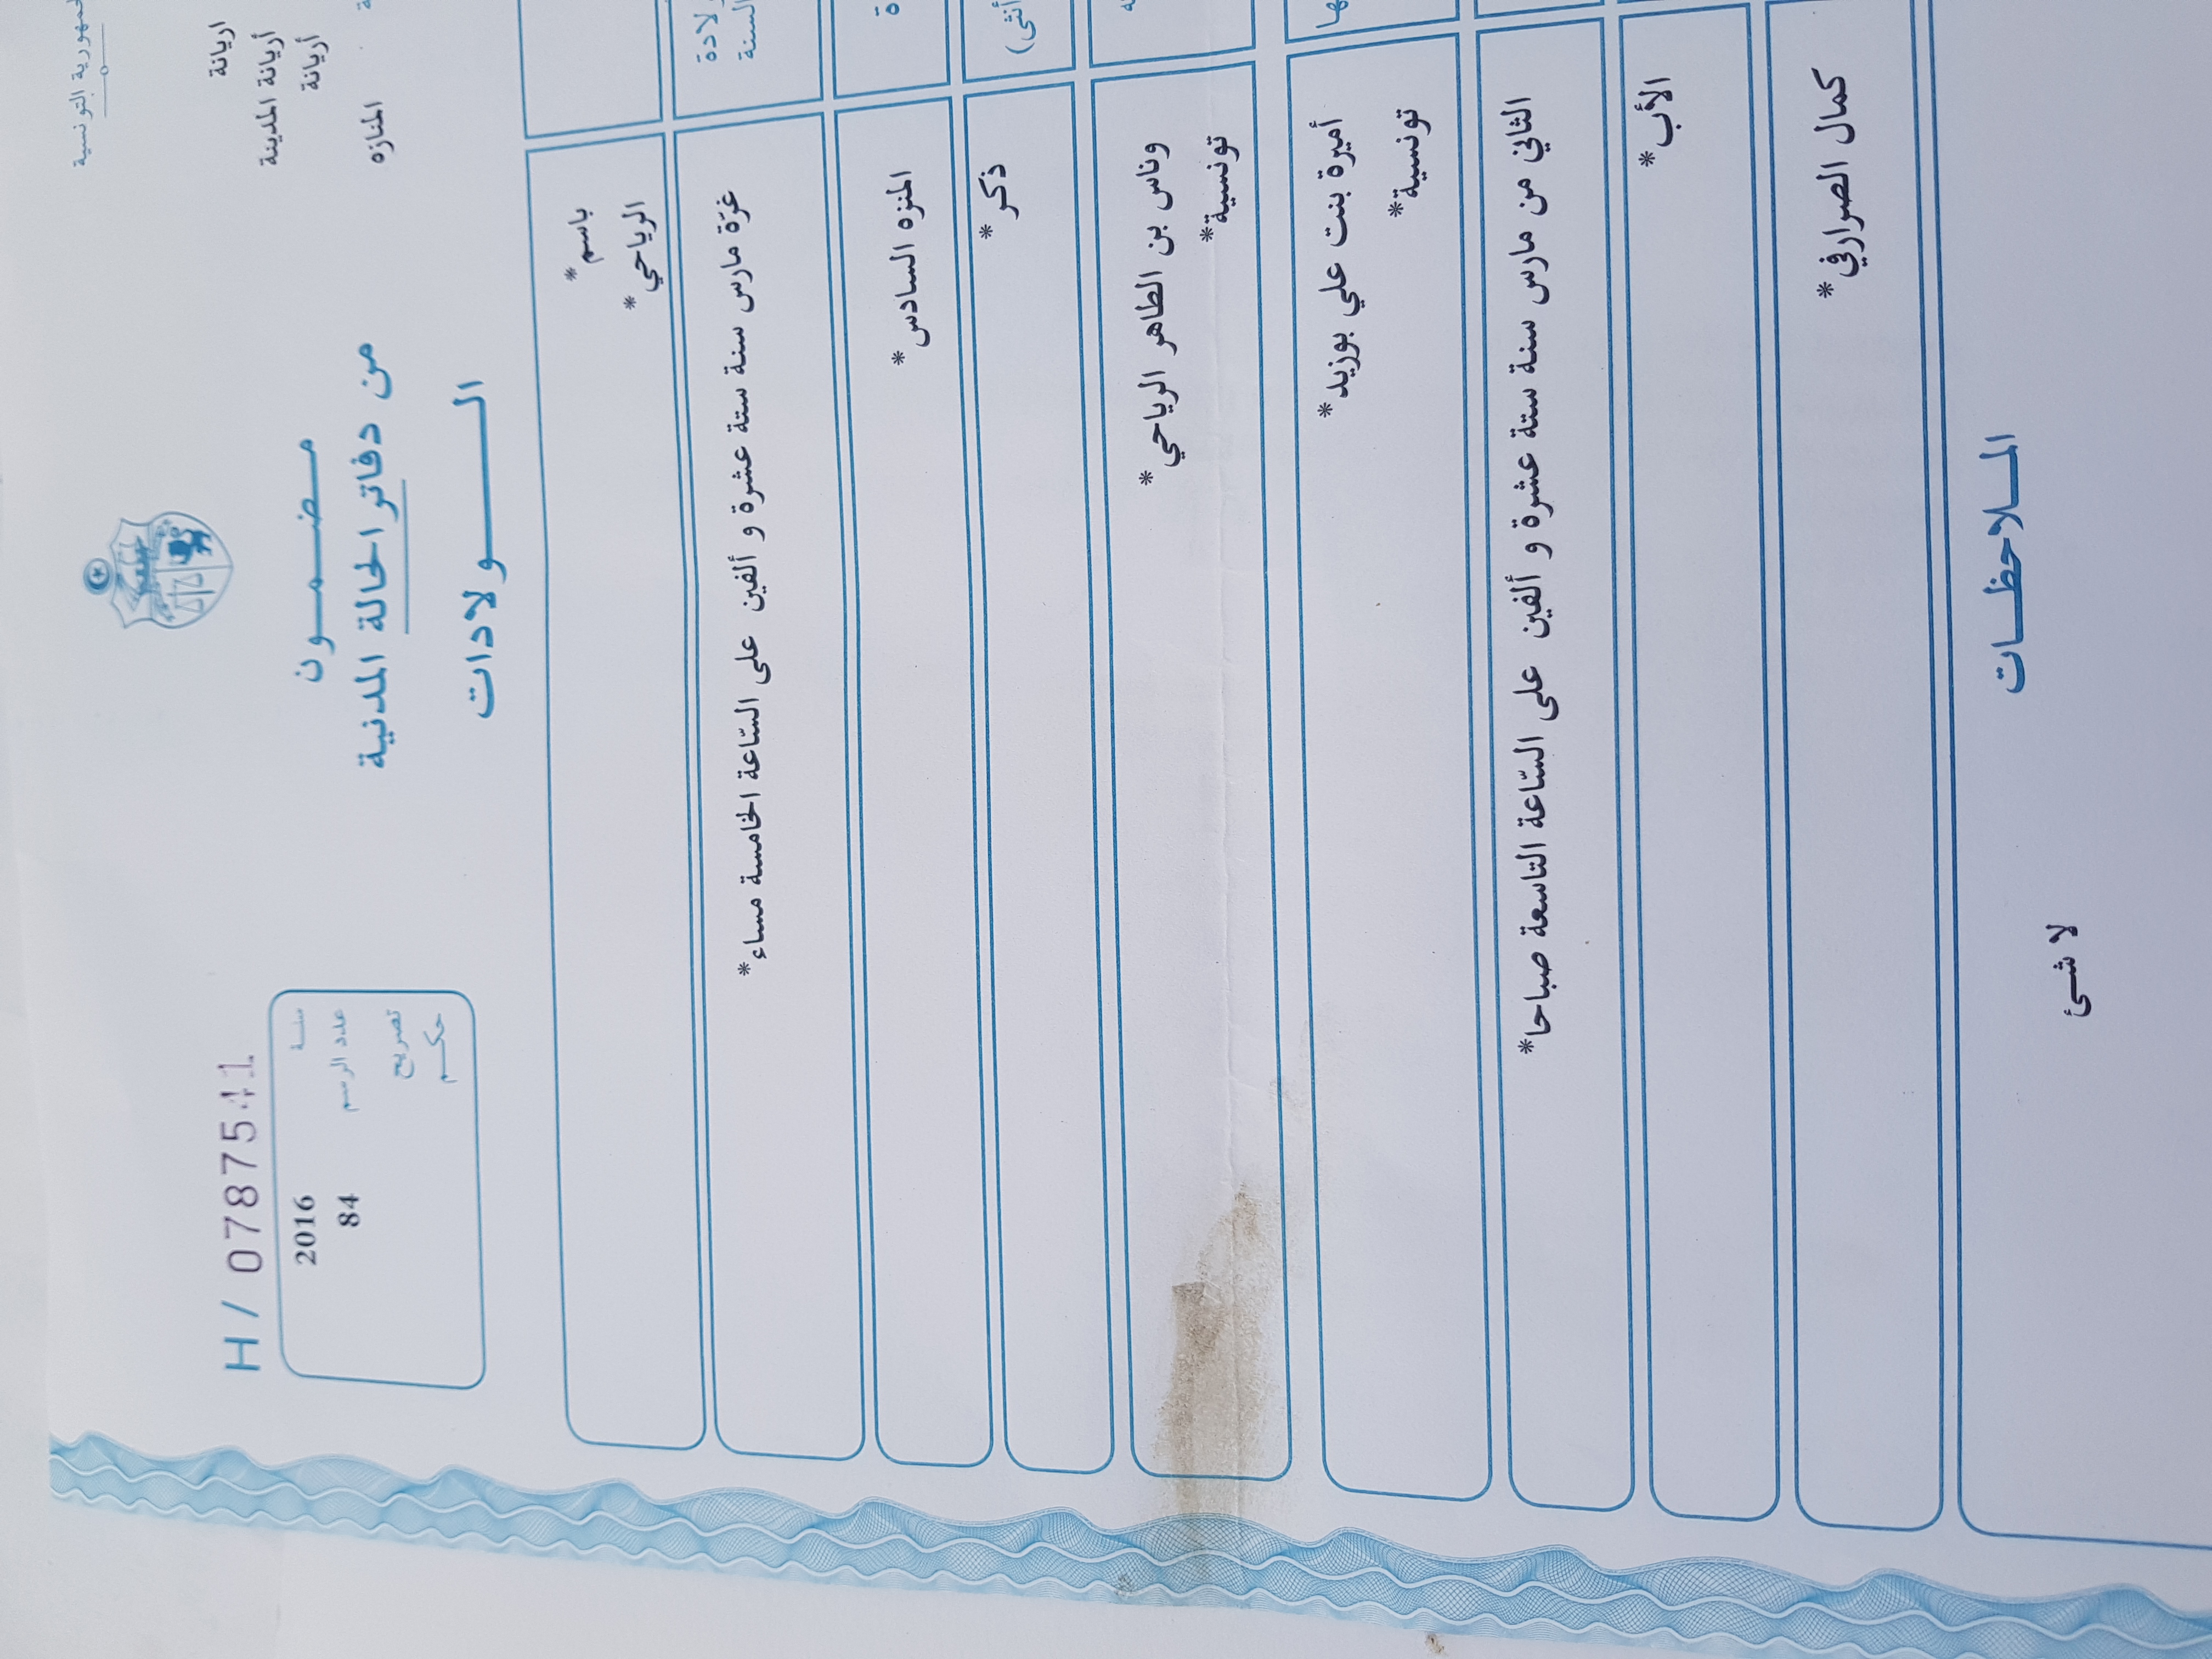 الجمهورية التونسية
اريانة
أريانة المدينة
أريانة
المنازه
H / 0787541
سنة 2016
عدد الرسم 84
تصريح
حكم
مضمون
من دفاتر الحالة المدنية
الولادات
باسم*
الرياحي*
السنة
غرّة مارس سنة ستة عشرة و ألفين على السّاعة الخامسة مساء*
المنزه السادس*
أنثى)
ذكر*
وناس بن الطاهر الرياحي*
تونسية*
أميرة بنت علي بوزيد*
تونسية*
الثاني من مارس سنة ستة عشرة و ألفين على السّاعة التاسعة صباحا*
الأب*
كمال الصرارفي*
الملاحظات
لا شئ